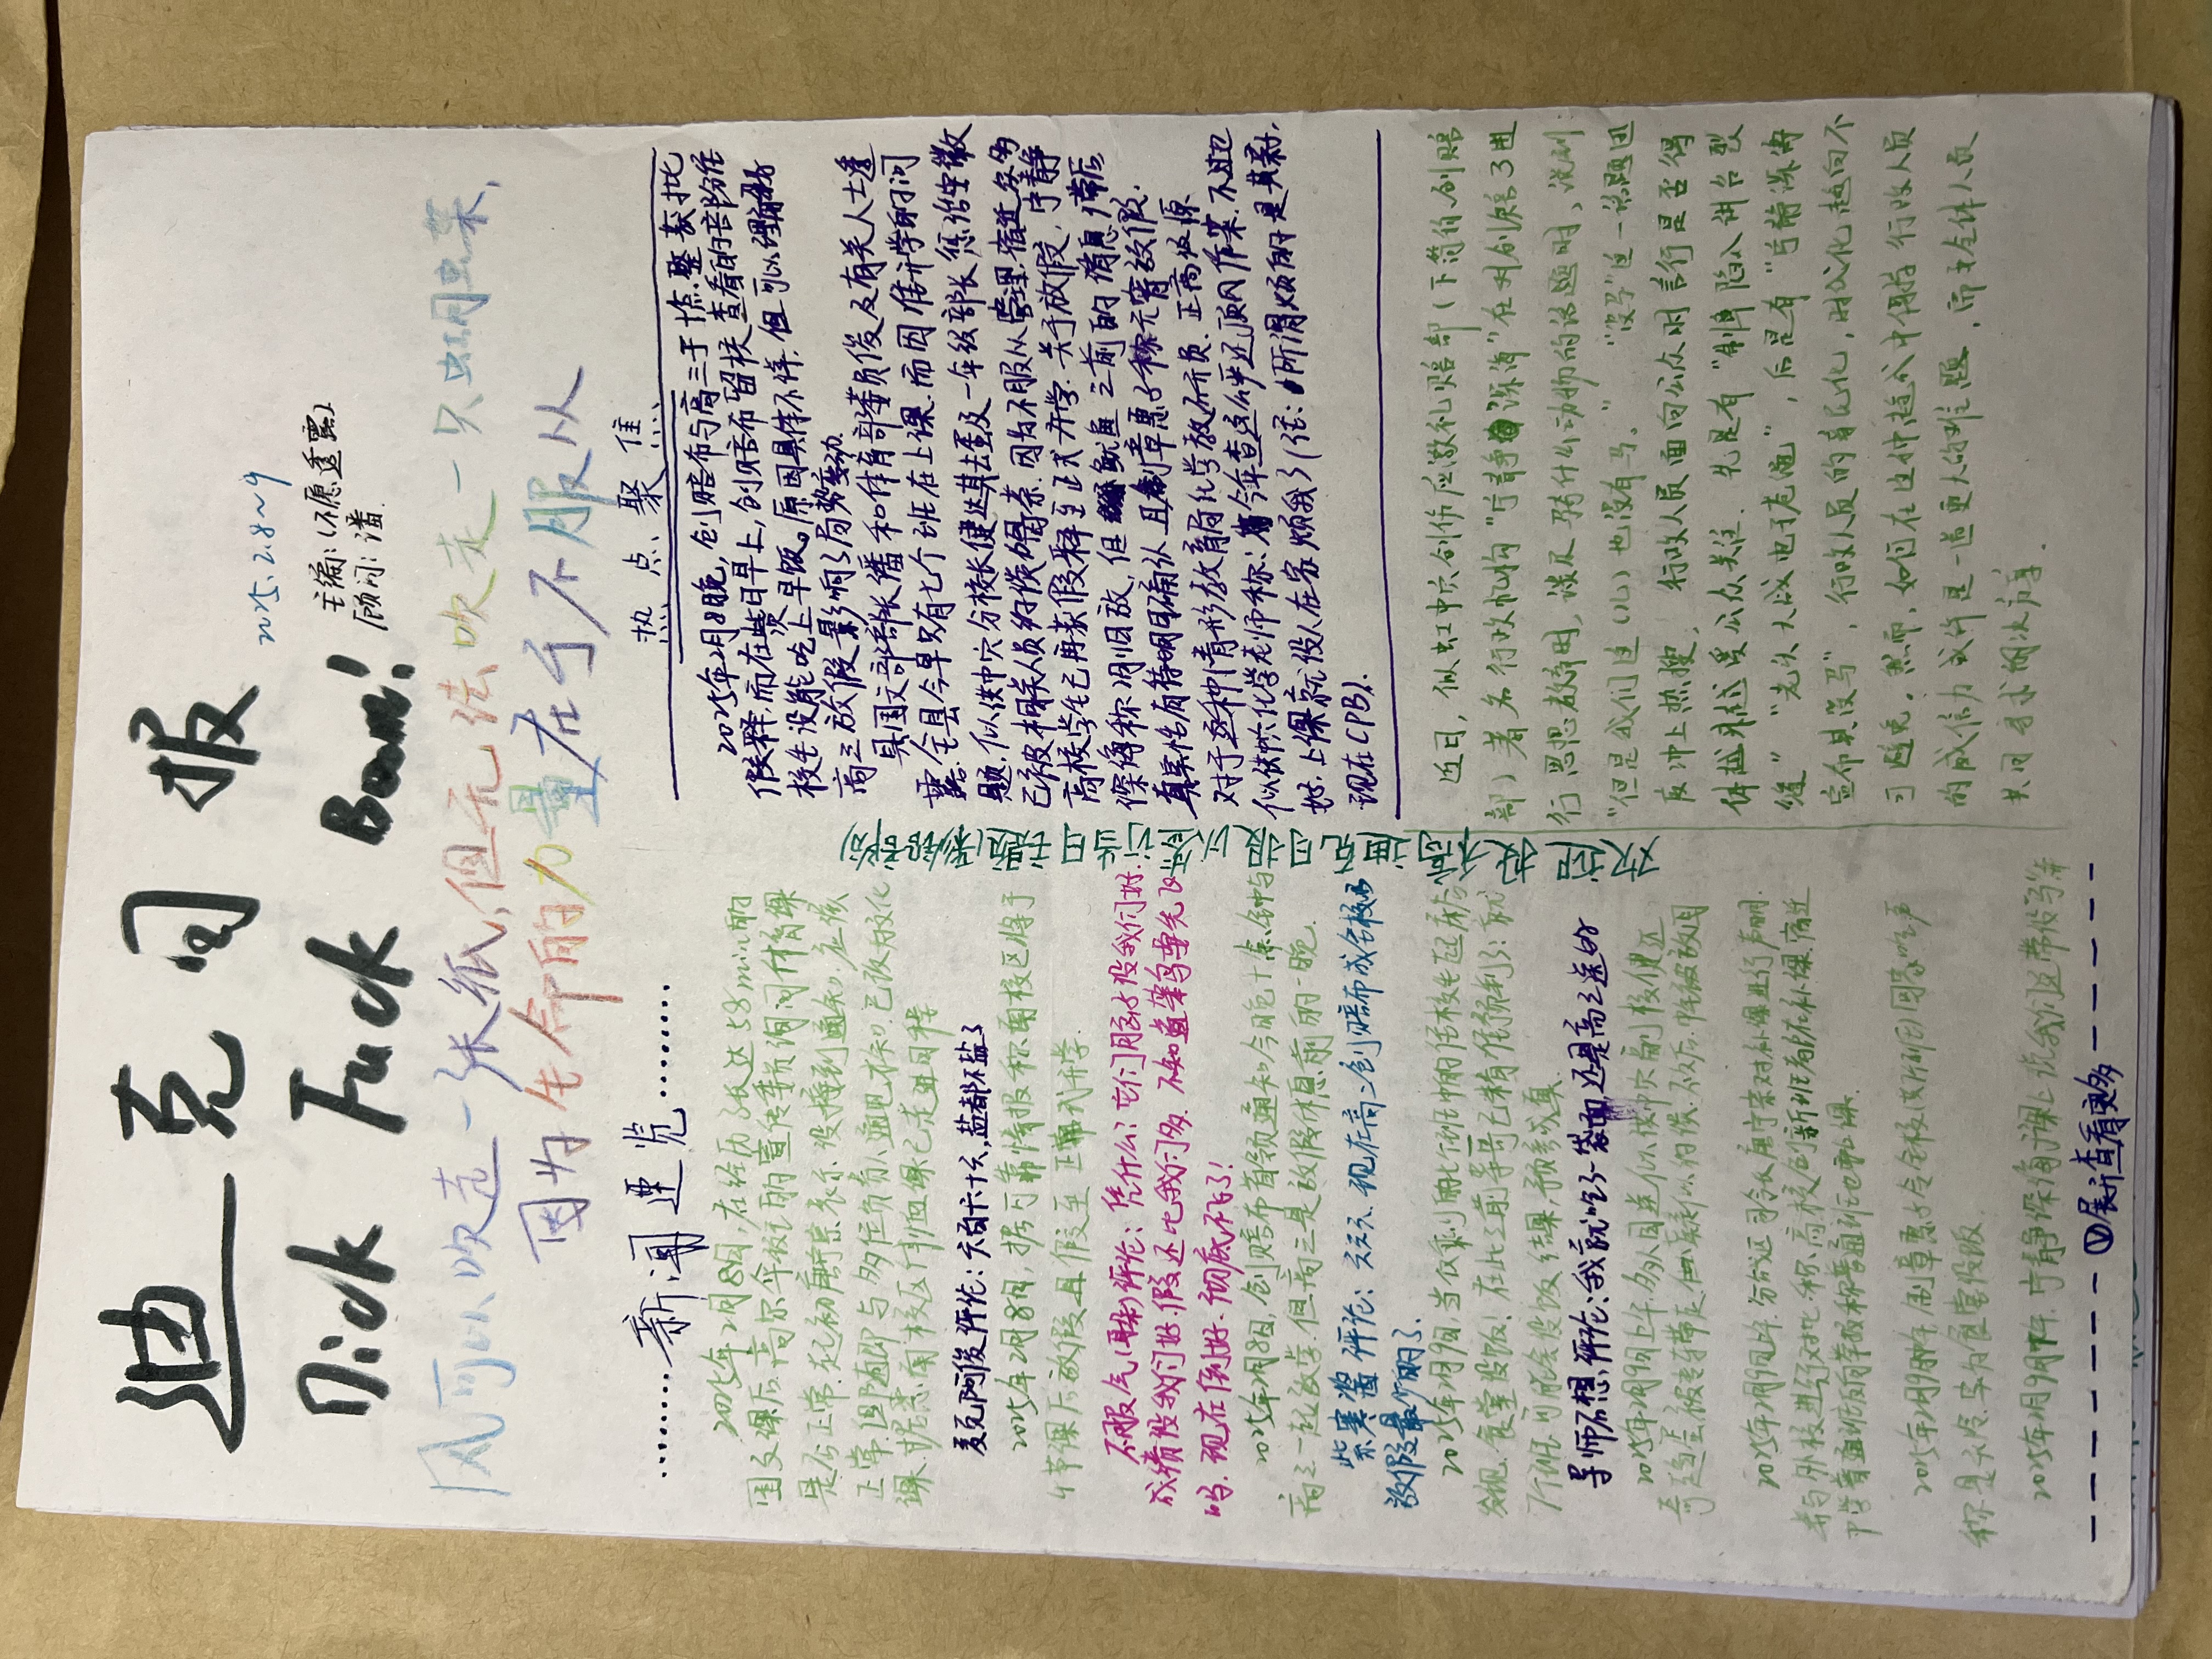 迪克日报
2025.2.8~9
Dick Fuck Boom!
主编:(不愿透露)
顾问:潘.
风可以吹走一张纸,但无法吹走一只蝴蝶,
因为生命的力量在于不服从
········新闻速览········
2025年2月8日,在经历了长达58min的
国文课后,高尔伞班的宣传委员询问体育课
是否正常,起初唐宁宗表示没接到通知,应该
正常,但随即与多位负责人通电才知,已改为文化
课.据悉南校区体恤课已走进日程
麦克阿俊评论:六百六十六,盐都不盐了
2025年2月8日,据可靠情报称南校区将于
4节课后放假且假至正式开学.
不服气(耶)评论:凭什么?它们脑子没我们好.
成绩没我们好.假还比我们多.不知道笨鸟要先飞
吗.现在倒好.彻底不飞了!
2025年2月8日,创赔布首领通知今晚十点钟与
高三一起放学.但高三是放假休息前的一晚.
紫寒酱评论:六六六.现在高二创赔布成全校
放假最少的了.
2025年2月9日,当仅剩的七个班中的住校生起床后
发现,食堂没饭!在此之前等哥已精准预判了:就
7个班可能会没饭 结果,预言成真.
导师石想评论:我就吃了一袋面,还是高三送的
2025年2月9日上午,多人目送似供中穴副校健达
奇趣蛋被专车带走,疑似约谈.不久后,中午被放回
2025年2月9日上午.分战区司令长唐宁宗对补课进行声明.
并与外校进行对比.称高校创新班都在补课.宿迁
中学普通班反向举报称普通班也要上课.
2025年2月9日中午.制章惠子令全校(共7个班)回家吃.声
称是天冷.实为食堂没饭.
2025年2月9日中午.宁静深海于课上说我们这带没"马"
------- Ⓥ展开查看更多 -----
欢迎投稿高迪克日报以签订当日主题(彩铅部分)
热点聚焦
2025年2月8晚,创赔布与高三于十点整获批
假释,而在翌日早上,创赔布留校查看的部分住
校生没能吃上早饭。原因具体不详,但可以理解为
高三放假影响了局势变动.
具国文部部长潘和体育部委员俊及有关人士透
露.全县今早只有七个班在上课.而因准开学的问
题.似供中穴分校长健达其去蛋及一年级部长惩治安徽
已被相关人员约谈喝茶.因为不服从管理.宿迁众多
高校学生已再获假释至正式开学.关于放假,宁静
深海称2月旧放,但鱿鱼之前的消息滞后
真实性有待明日确认.且制章惠子称元宵放假.
对于这种情形教育局化学教研员.正高级原
似供中穴化学老师称:今年查这么严还顶风作案.不过也
好.上课就没人在家烦我了(注:所谓烦的是其亲子,
现在CPB).
近日,似虹中穴创伤应激礼赔部(下简称创赔
部)著名行政机构"宁静深海"在对创赔3进
行思想教育时,谈及骑什么动物的话题时,说到:
"但是我们这(儿)也没有马."  "没马"这一话题迅
度冲上热搜,行政人员面向公众时言行是否得
体越来越受公众关注.先是有"制章陷入讲台裂
缝""老头大战电子苍蝇",后是有"宁静深海
宣布其没马",行政人员的亲民化,时代化趋向不
可避免.然而,如何在这种趋式中保持行政人员
的威信力或许是一道更大的难题,需要全体人员
共同寻求解决方案.